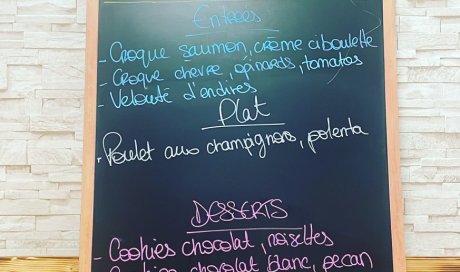 Entrées
- Croque saumon, crème ciboulette
- Croque chèvre, épinards, tomates
- Velouté d'endives
Plat
- Poulet aux champignons, polenta
DESSERTS
- Cookies chocolat, noisettes
- Cookies chocolat blanc, pecan